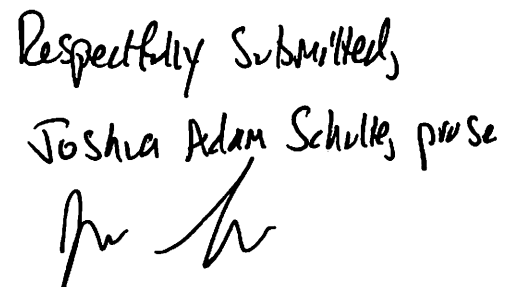 Respectfully Submitted,
Joshua Adam Schulte, pro se